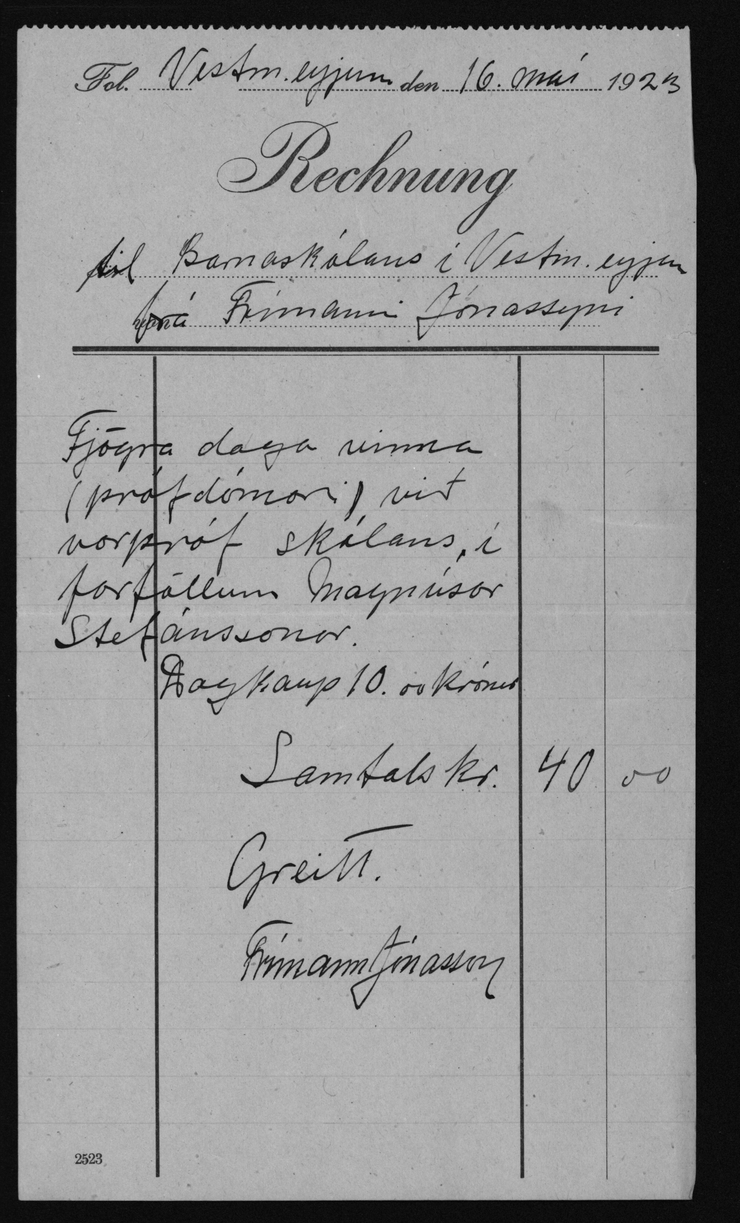 Fol. Vestm.eyjum den 16. maí 1923
Rechnung
til Barnaskólans í Vestm.eyjum
frá Frímanni Jónassyni
Fjögra daga vinna
(prófdómari) við
vorpróf skólans, í
forföllum Magnúsar
Stefánssonar.
Dagkaup 10.00 krónur
Samtals kr. 40 00
Greitt.
Frímann Jónasson
2523